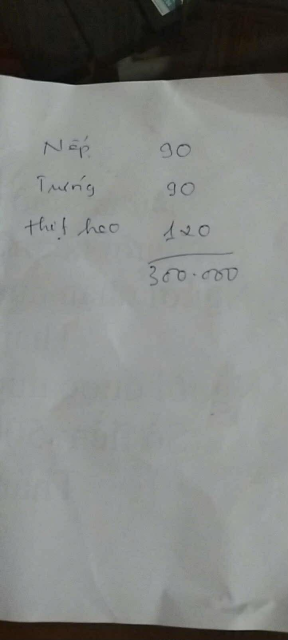 Nếp 90
Trứng 90
thịt heo 120
300.000